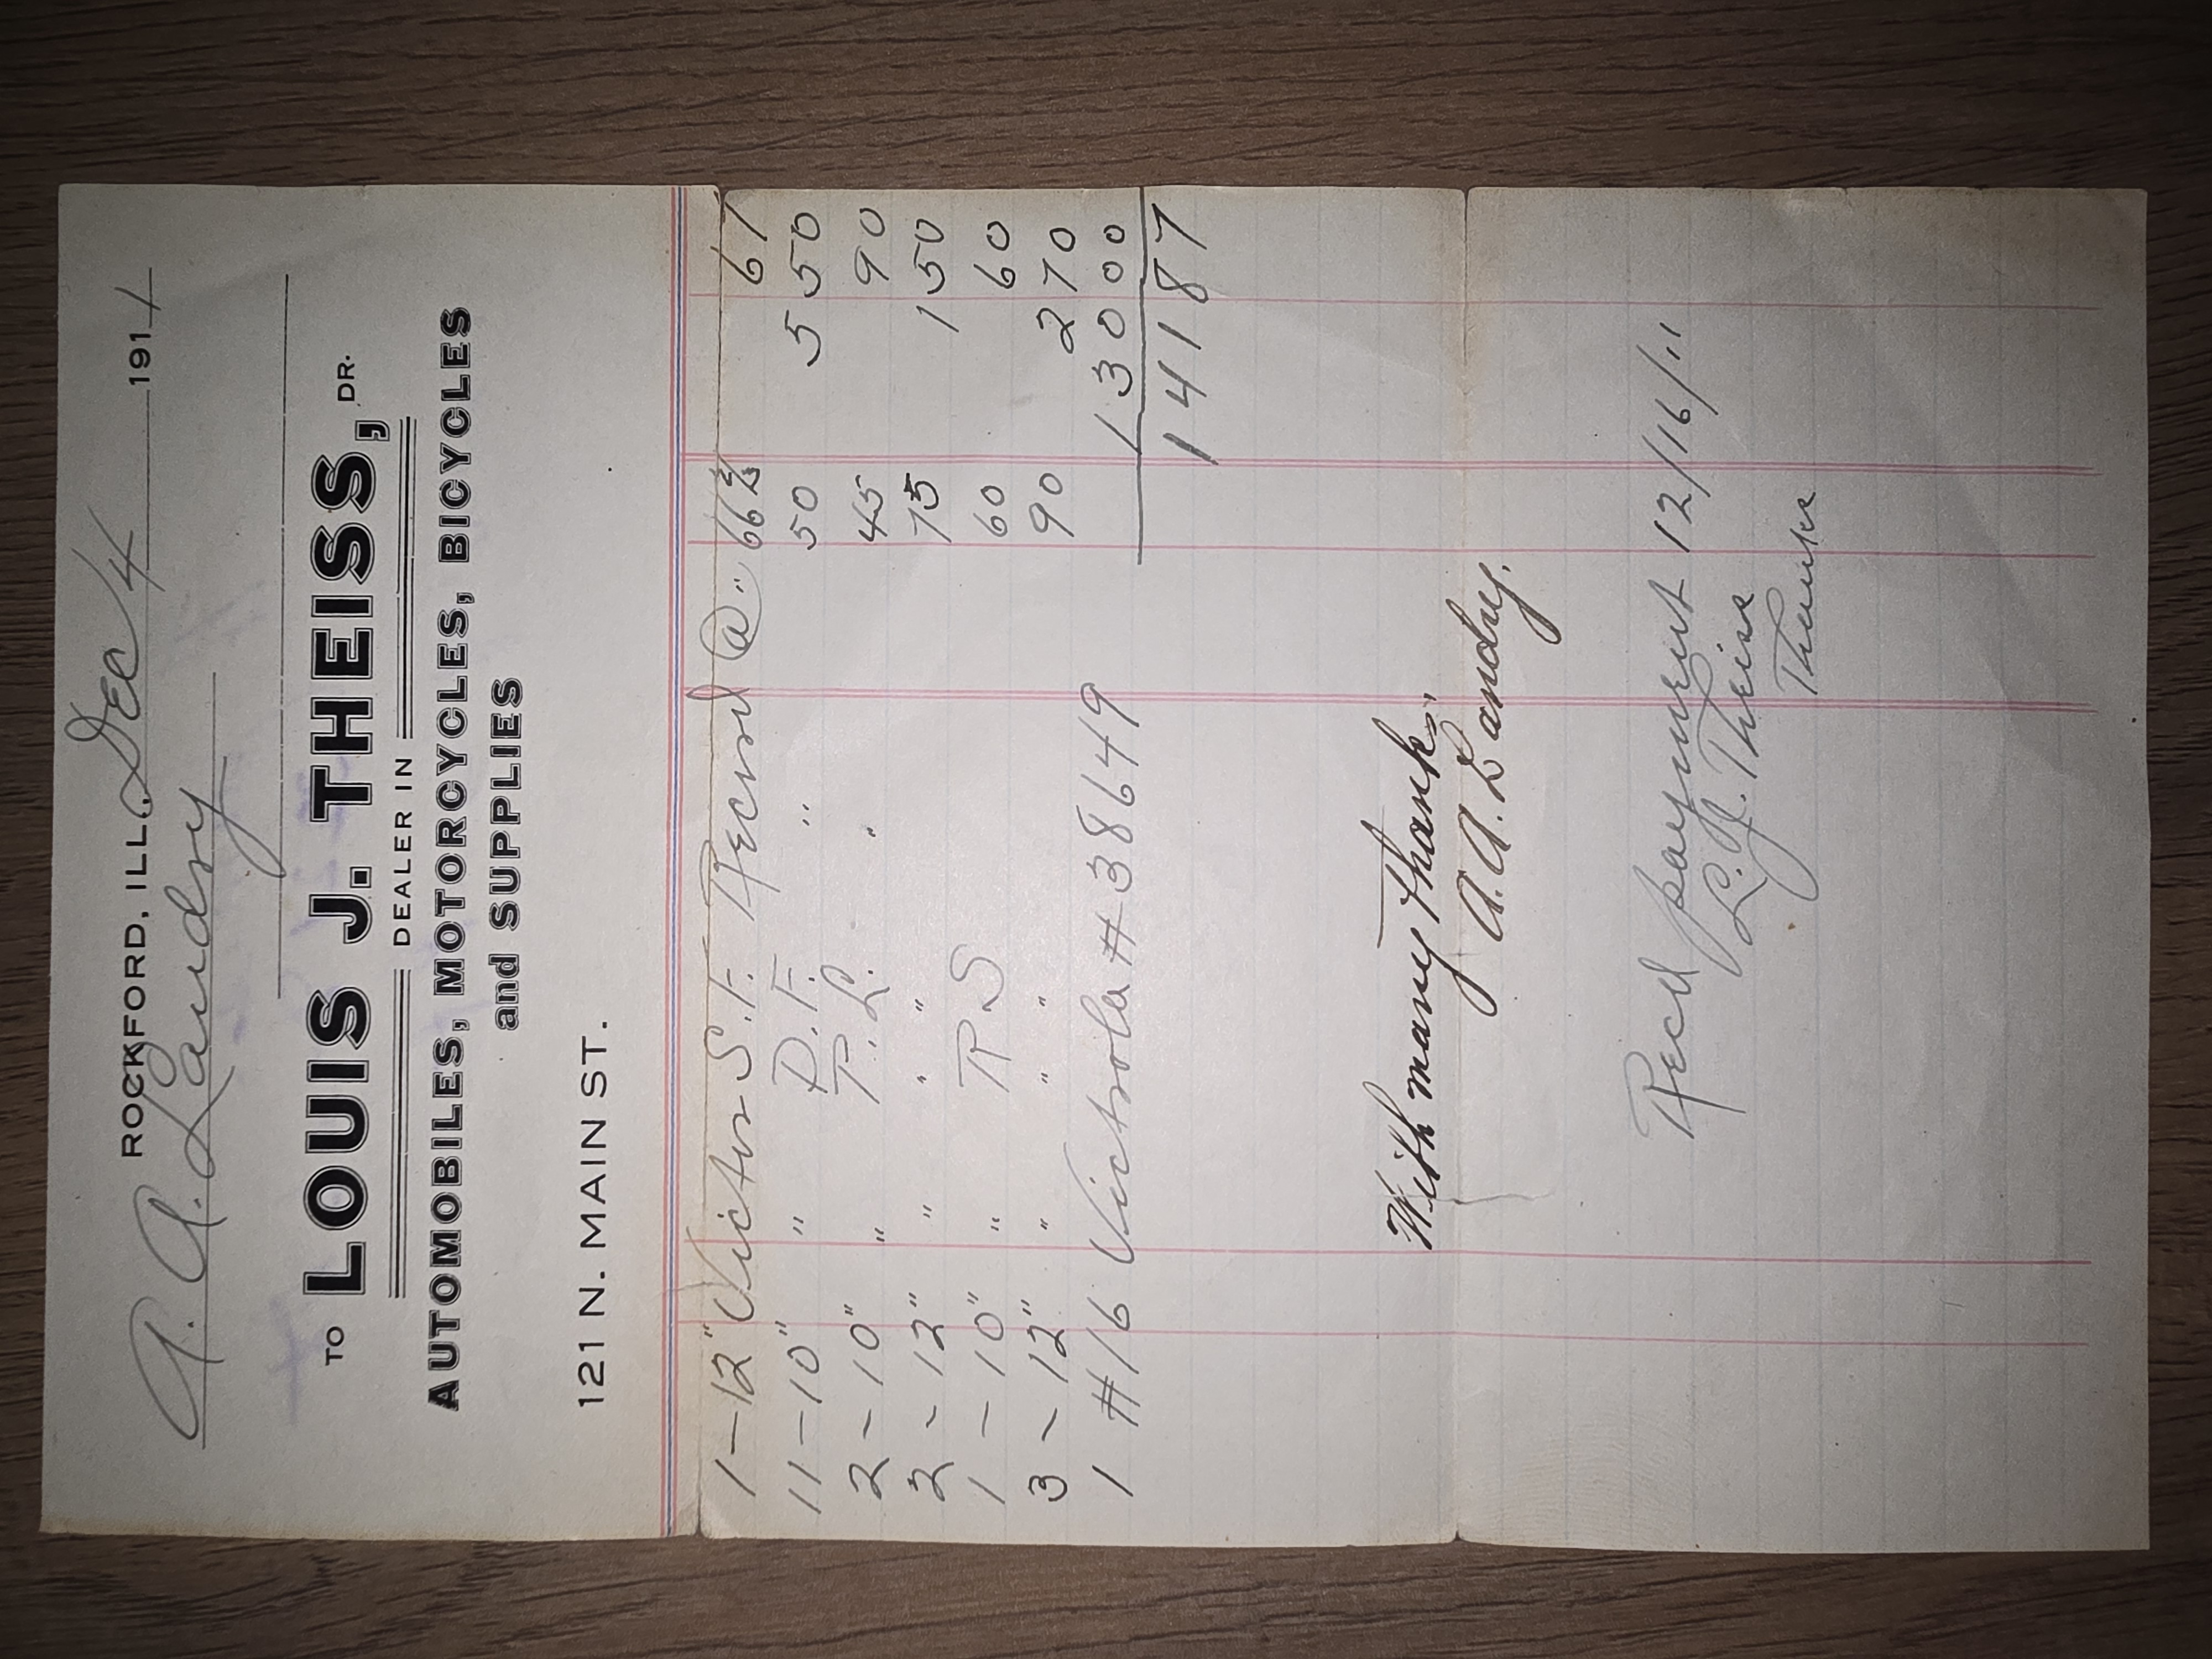 ROCKFORD, ILL., Dec 4 1911
A. A. Landry
TO LOUIS J. THEISS, DR.
DEALER IN
AUTOMOBILES, MOTORCYCLES, BICYCLES
and SUPPLIES
121 N. MAIN ST.
1 - 12" Victor S.F. Record @ .. 66 2/3 67
11 - 10" " D.F. " 50 5 50
2 - 10" " P.L. " 45 90
2 - 12" " " " 75 1 50
1 - 10" " P.S 60 60
3 - 12" " " " 90 2 70
1 #16 Victrola #38649 130 00
141 87
With many thanks,
A. A. Landry.
Recd payment 12/16/11
L. J. Theiss
Thanks